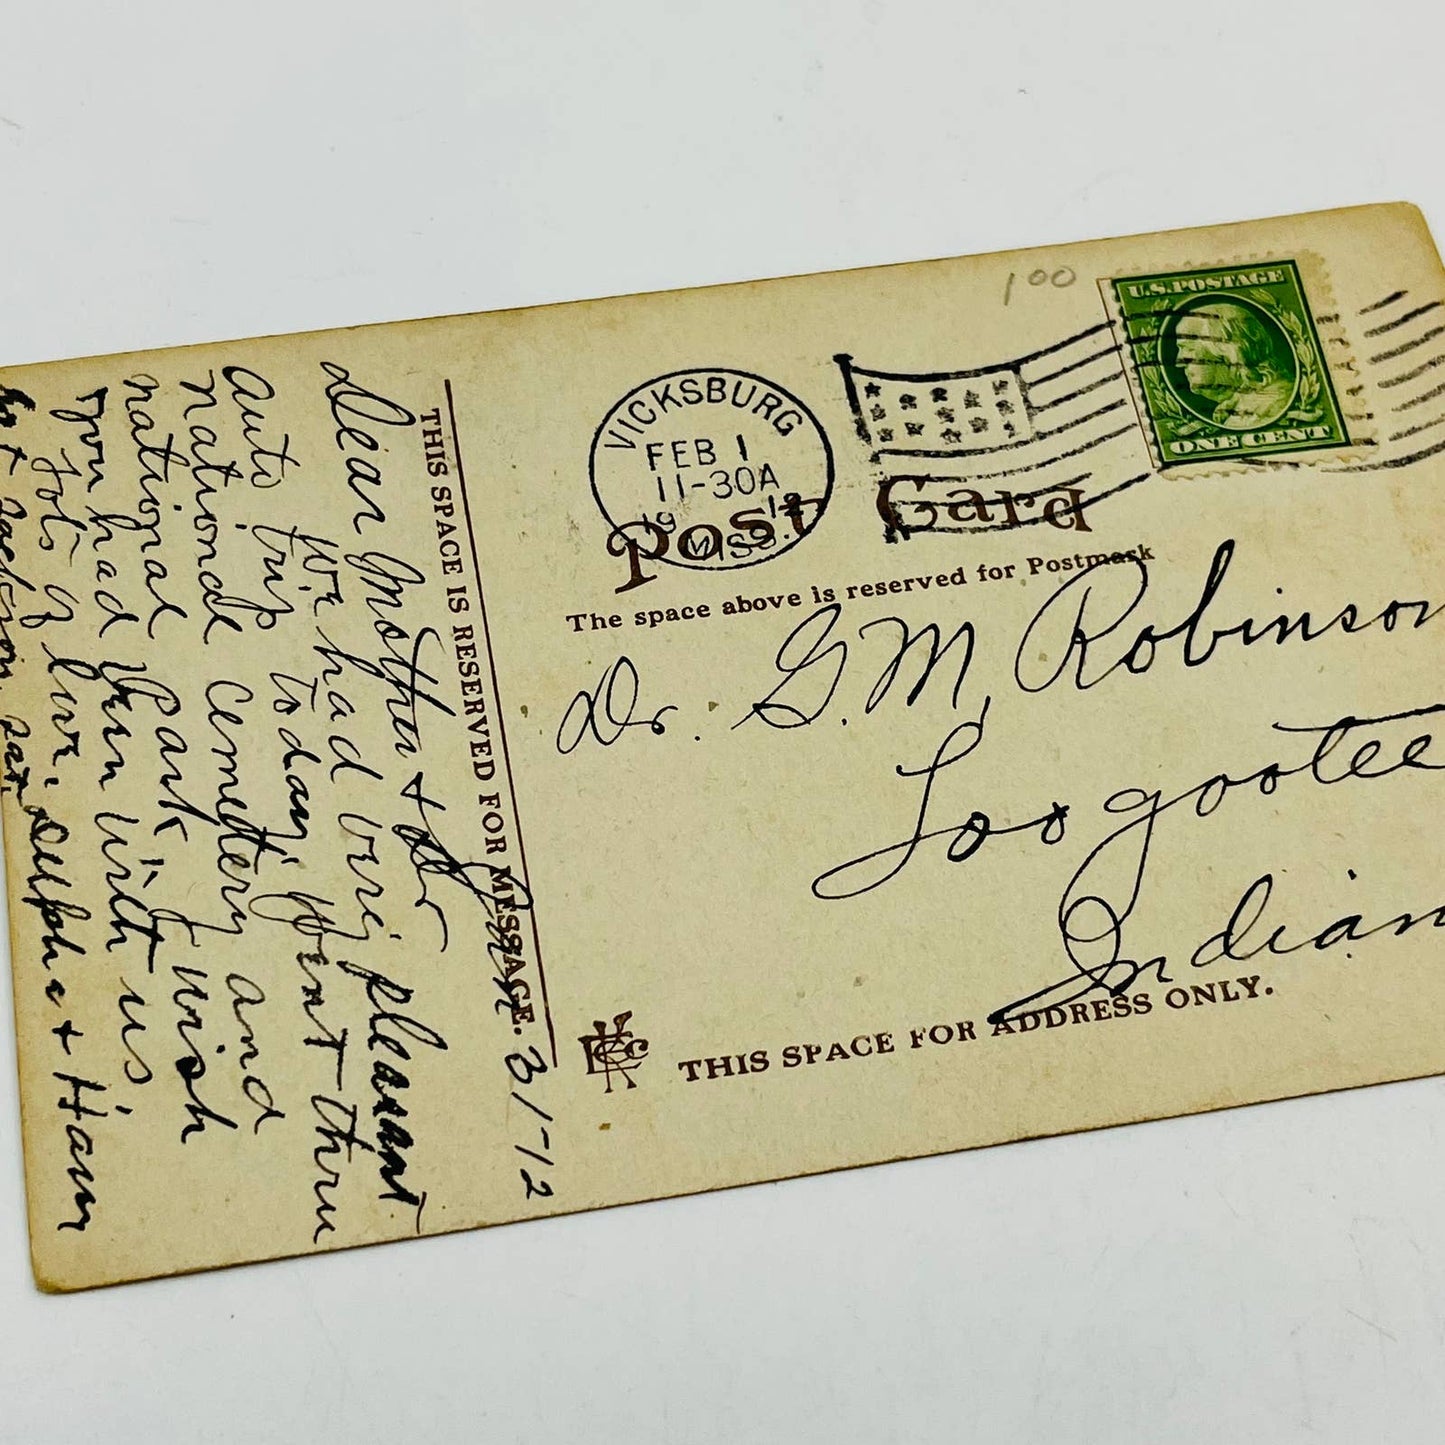 100
U.S. POSTAGE
ONE CENT
VICKSBURG
FEB 1
11-30A
19 12
MISS.
Post Card
The space above is reserved for Postmark
Dr. G. M. Robinson
Loogootee
Indian
THIS SPACE FOR ADDRESS ONLY.
THIS SPACE IS RESERVED FOR MESSAGE.
Jan. 31-12
Dear Mother &
We had very pleasant
auto trip today. Went thru
National Cemetery and
national Park. Wish
you had been with us
Lots of love.
& Harry
Jackson